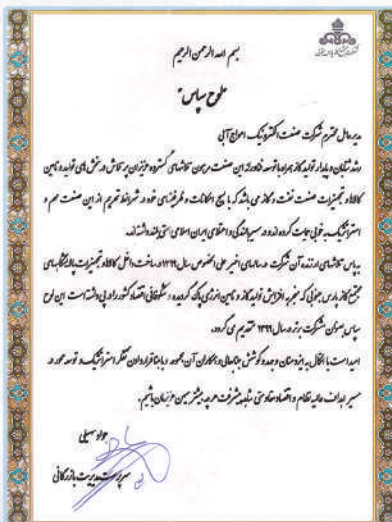 شرکت مجتمع گاز پارس جنوبی
بسم الله الرحمن الرحیم
لوح سپاس
مدیرعامل محترم شرکت صنعت الکترونیک امواج آبی
رشد شتابان و پایدار تولید گاز همراه با توسعه فناورانه این صنعت مرهون تلاشهای گسترده عزیزان پرتلاش در بخش های تولید و تامین
کالا و تجهیزات صنعت نفت و گاز می باشد که با بسیج امکانات و ظرفیتهای خود در شرائط تحریم از این صنعت مهم و
استراتژیک به خوبی حمایت کرده اند و در مسیر بالندگی و اعتلای ایران اسلامی همتی بلند داشته اند.
بپاس تلاشهای ارزنده آن شرکت در سالهای اخیر علی الخصوص سال ۱۳۹۹ در ساخت داخل کالا و تجهیزات پالایشگاههای
مجتمع گاز پارس جنوبی که منجر به افزایش تولید گاز و تامین انرژی پاک گردیده و شکوفائی اقتصاد کشور را در پی داشته است این لوح
سپاس بعنوان شرکت برتر در سال ۱۳۹۹ تقدیم می گردد.
امید است با اتکال به ایزد منان و جد و کوشش جنابعالی و همکاران آن مجموعه و با مبنا قرار دادن تفکر استراتژیک و توسعه محور در
مسیر اهداف عالیه نظام و اقتصاد مقاومتی شاهد پیشرفت هرچه بیشتر میهن عزیزمان باشیم.
جواد سهیلی
سرپرست مدیریت بازرگانی